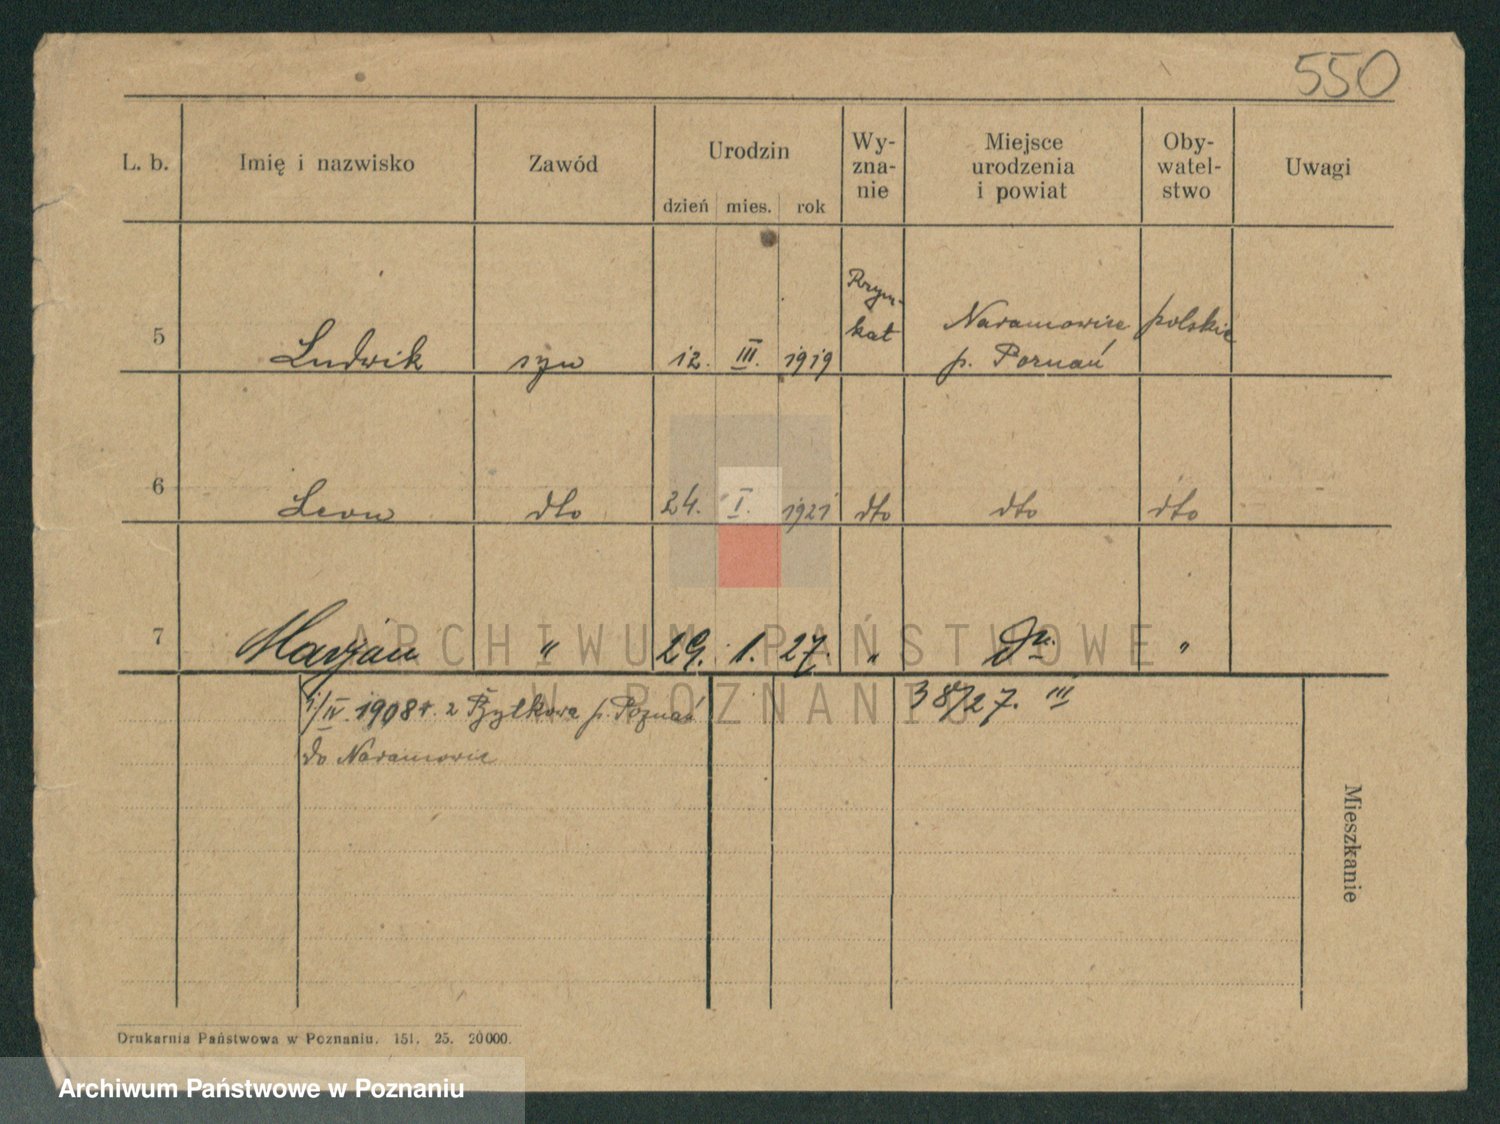 550
L. b. Imię i nazwisko Zawód Urodzin Wy- Miejsce Oby- Uwagi
zna- urodzenia watel-
dzień mies. rok nie i powiat stwo
Rzym-
5 Ludwik syn 12. III. 1919 kat Naramowice polskie
p. Poznań
6 Leon dto 24. I. 1921 dto dto dto
7 Marjan " 29. 1. 27. " "
ARCHIWUM PAŃSTWOWE
W POZNANIU
IV. 1908 r. z p. Poznań 38/27. III
do Naramowic
Mieszkanie
Drukarnia Państwowa w Poznaniu. 151. 25. 20000.
Archiwum Państwowe w Poznaniu